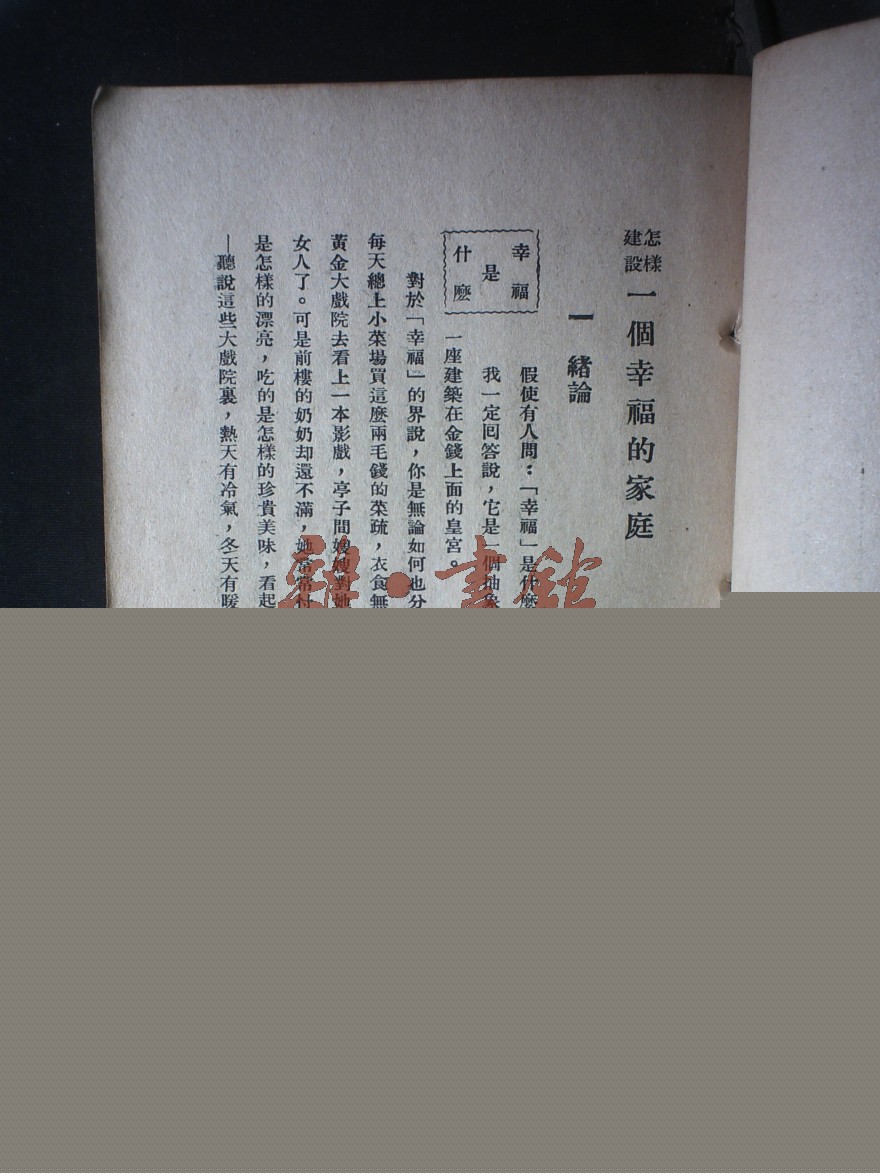 怎樣建設一個幸福的家庭
一 緒論
幸福是什麼
假使有人問:「幸福」是什麼
我一定回答說,它是一個抽象
一座建築在金錢上面的皇宮。
對於「幸福」的界說,你是無論如何也分
每天總上小菜場買這麼兩毛錢的菜疏,衣食無
黃金大戲院去看上一本影戲,亭子間嫂嫂對她
女人了。可是前樓的奶奶却還不滿,她常常忖
是怎樣的漂亮,吃的是怎樣的珍貴美味,看起
—聽說這些大戲院裏,熱天有冷氣,冬天有暖
書館